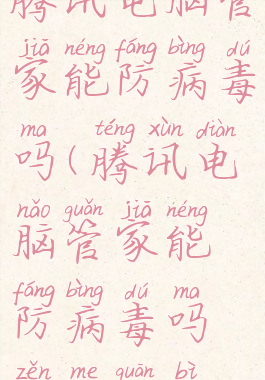 腾讯电脑管
jiā néng fáng bìng dú
家能防病毒
ma téng xùn diàn
吗(腾讯电
nǎo guǎn jiā néng
脑管家能
fáng bìng dú ma
防病毒吗
zěn me guān bì